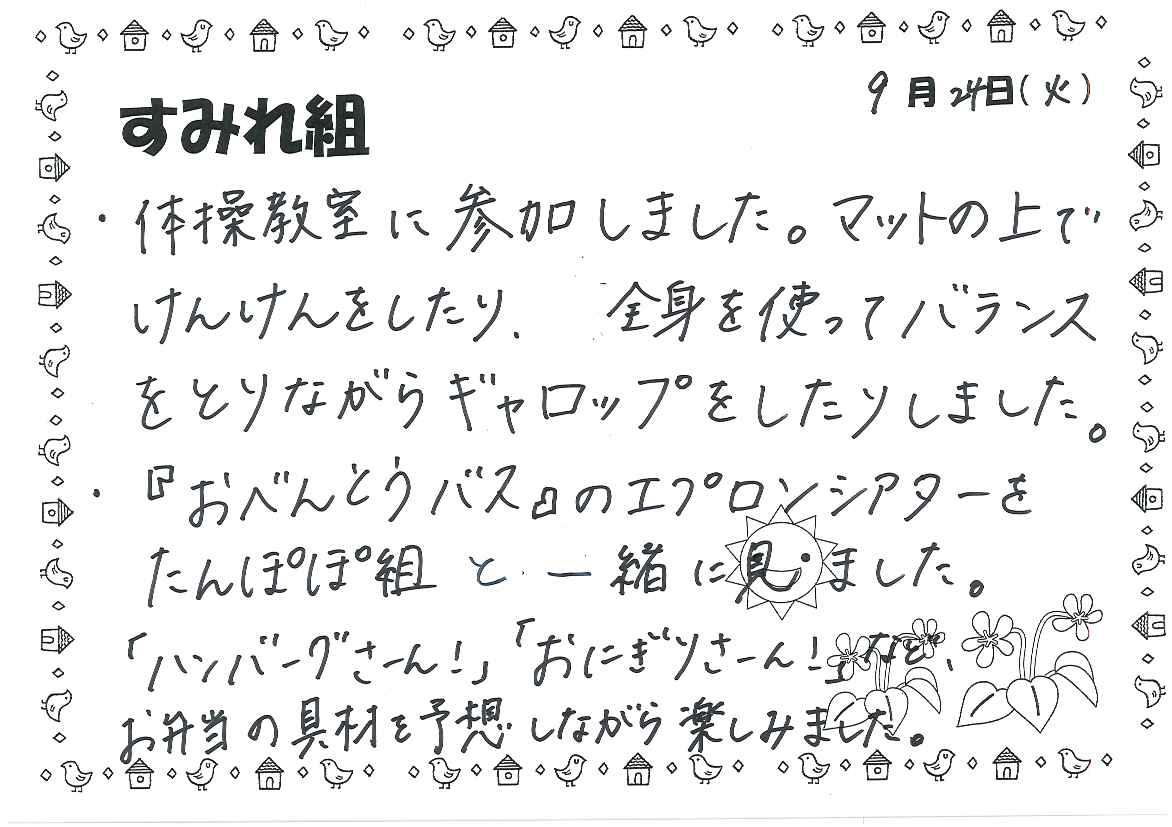 9月24日(火)
すみれ組
・体操教室に参加しました。マットの上で
けんけんをしたり、 全身を使ってバランス
をとりながらギャロップをしたりしました。
・『おべんとうバス』のエプロンシアターを
たんぽぽ組と一緒に見ました。
「ハンバーグさーん!」「おにぎりさーん!」など、
お弁当の具材を予想しながら楽しみました。